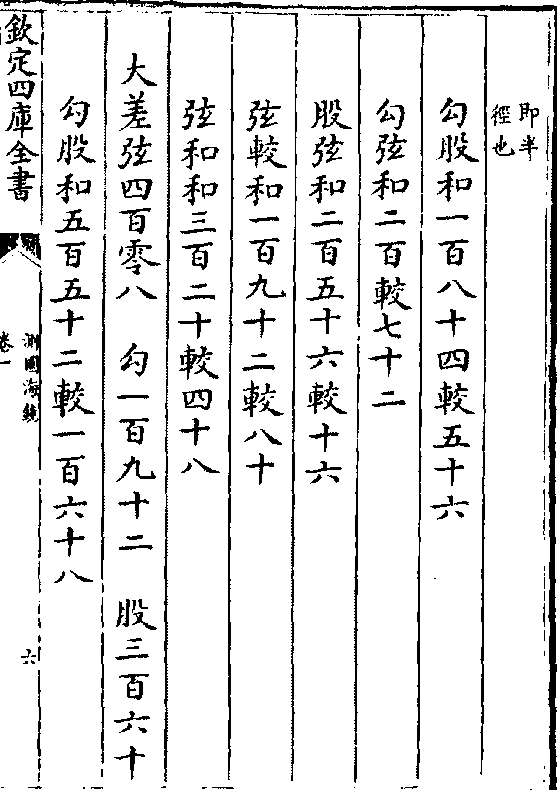 即半
徑也
勾股和一百八十四較五十六
勾弦和二百較七十二
股弦和二百五十六較十六
弦較和一百九十二較八十
弦和和三百二十較四十八
大差弦四百零八　勾一百九十二　股三百六十
勾股和五百五十二較一百六十八
欽定四庫全書
測圓海鏡
卷一
六